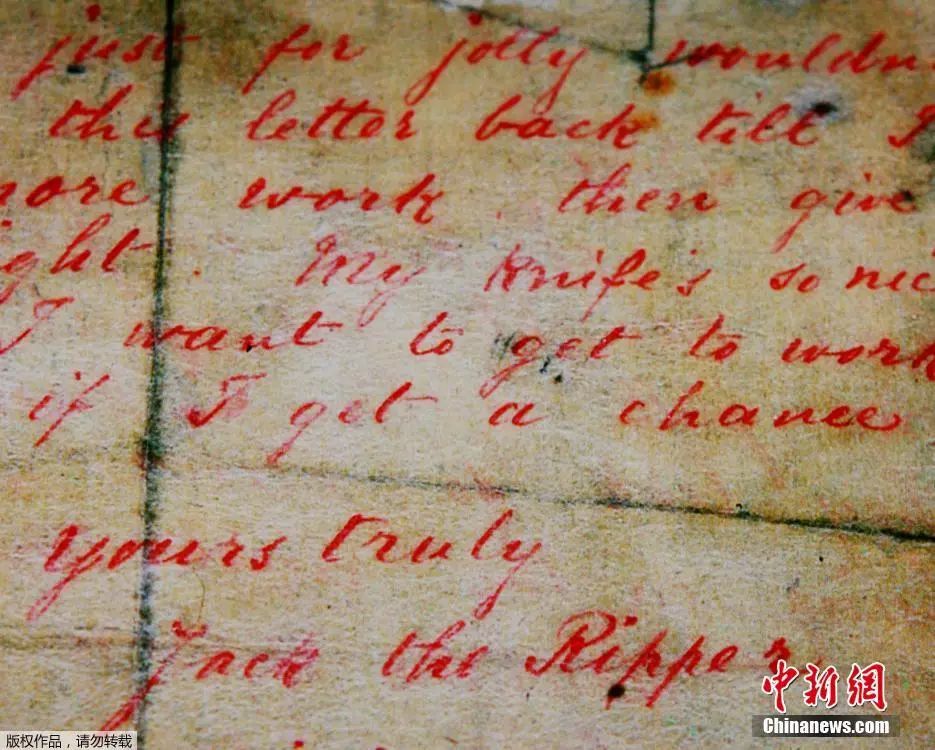 just for jolly wouldn
this letter back till I
more work. then give
ight. My knife's so nic
I want to get to work
if I get a chance
yours truly
Jack the Ripper
版权作品,请勿转载
中新网
Chinanews.com